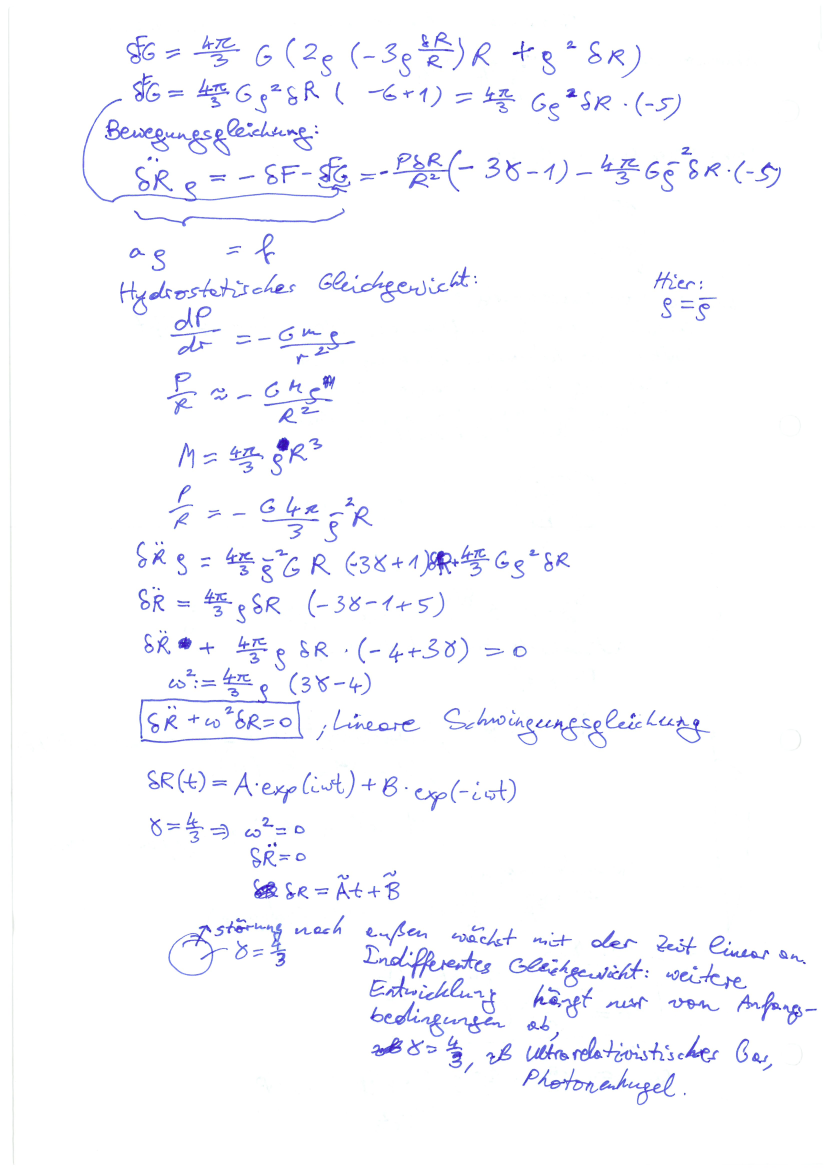 δF_G = 4π/3 G (2ρ (-3ρ δR/R) R + ρ² δR)
δF_G = 4π/3 Gρ² δR ( -6+1) = 4π/3 Gρ² δR · (-5)
Bewegungsgleichung:
δR̈ ρ = - δF - δF_G = - PδR/R² (- 3γ - 1) - 4π/3 Gρ̄² δR · (-5)
a ρ = f
Hydrostatisches Gleichgewicht:
Hier:
ρ = ρ̄
dP/dr = - Gmρ/r²
P/R ≈ - GMρ/R²
M = 4π/3 ρ R³
P/R = - G4π/3 ρ̄² R
δR̈ ρ = 4π/3 ρ̄² G R (-3γ+1) δR + 4π/3 Gρ² δR
δR̈ = 4π/3 ρ δR (-3γ-1+5)
δR̈ + 4π/3 ρ δR · (-4+3γ) = 0
ω² := 4π/3 ρ (3γ-4)
δR̈ + ω² δR = 0 ; Lineare Schwingungsgleichung
δR(t) = A·exp(iωt) + B·exp(-iωt)
γ = 4/3 ⇒ ω² = 0
δR̈ = 0
δR = Ãt + B̃
störung nach außen wächst mit der Zeit linear an.
γ = 4/3 Indifferentes Gleichgewicht: weitere
Entwicklung hängt nur vom Anfangs-
bedingungen ab,
γ = 4/3, zB Ultrarelativistisches Gas,
Photonenkugel.